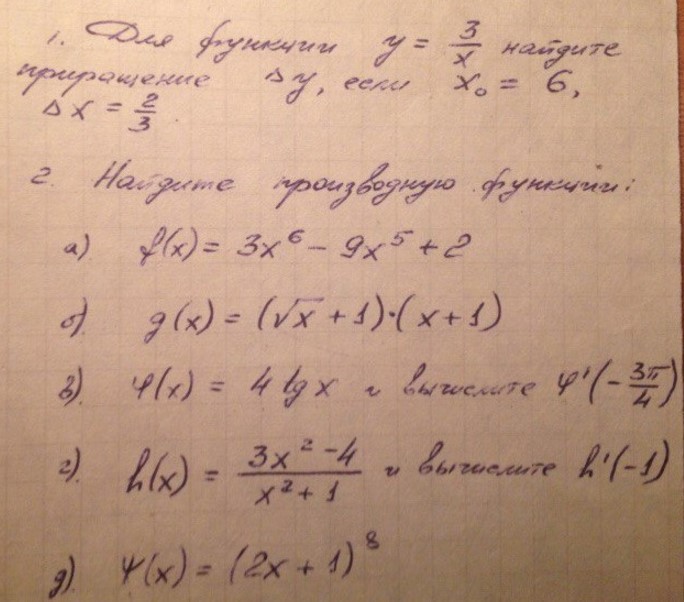 1. Для функции y = 3/x найдите
приращение Δy, если x₀ = 6,
Δx = 2/3.
2. Найдите производную функции:
а) f(x) = 3x⁶ - 9x⁵ + 2
б). g(x) = (√x + 1)·(x + 1)
в). φ(x) = 4 tg x и вычислите φ'(-3π/4)
г). h(x) = (3x² - 4)/(x² + 1) и вычислите h'(-1)
д). ψ(x) = (2x + 1)⁸